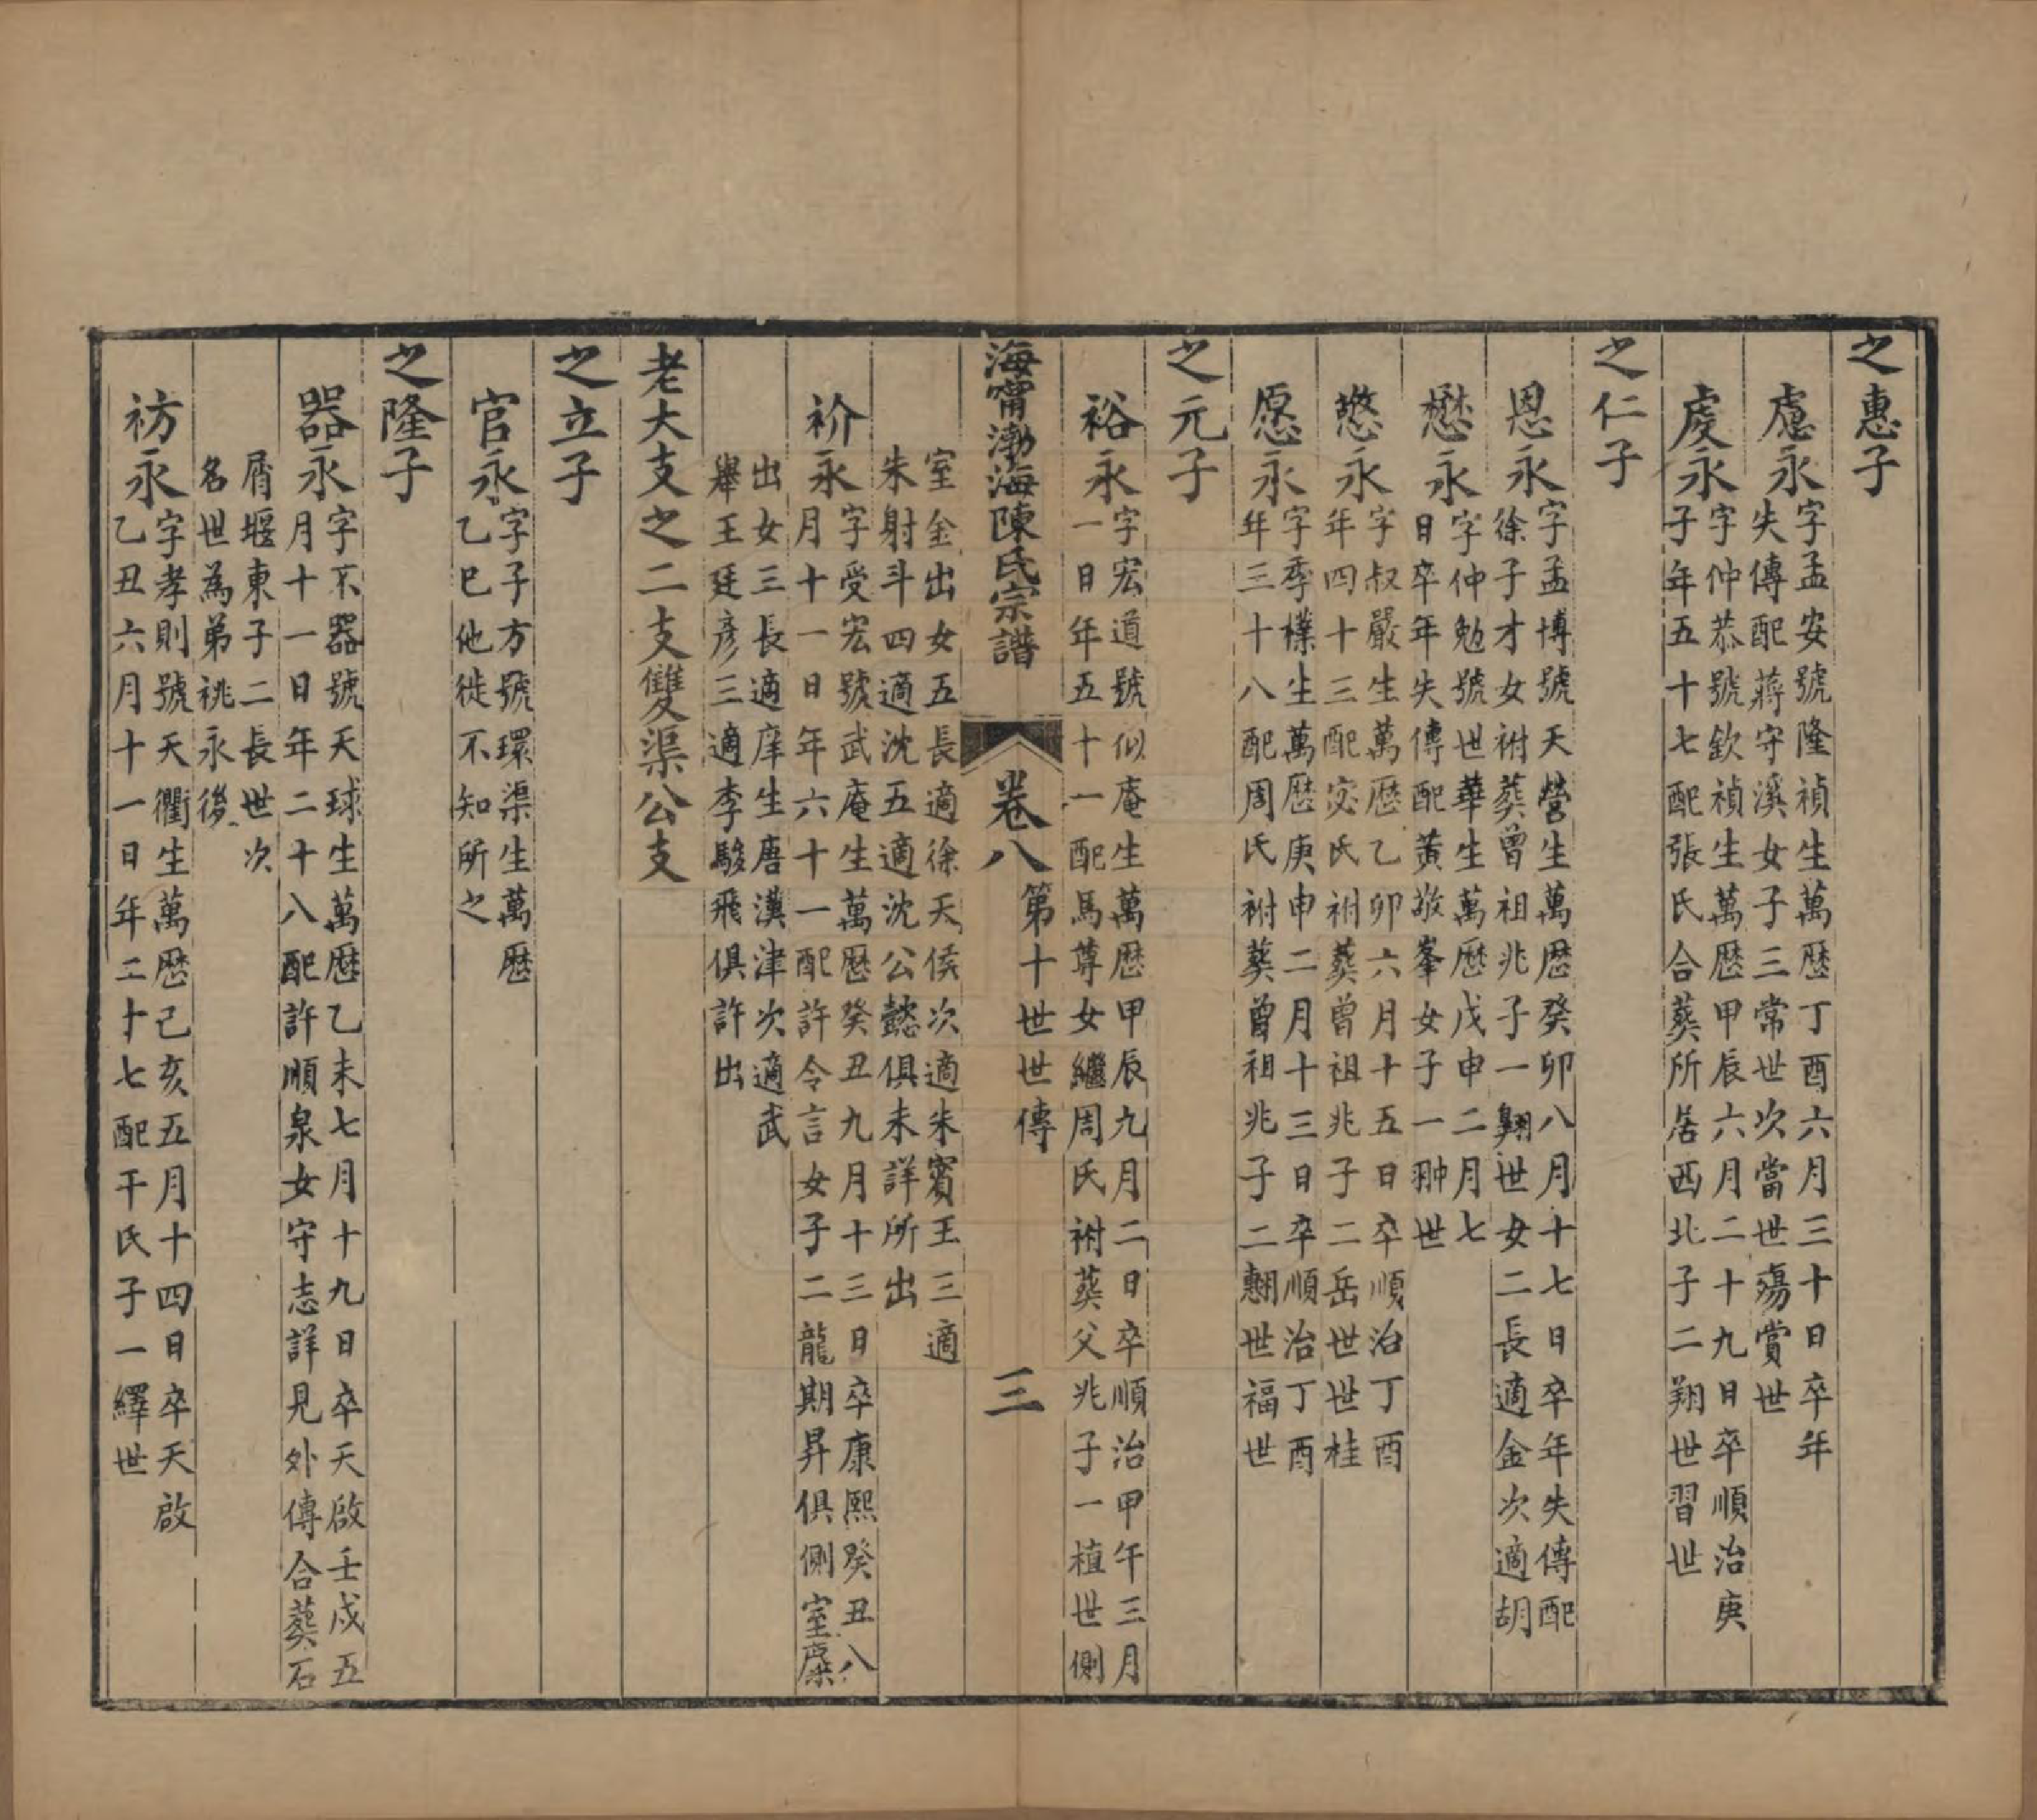 之惠子
慮永
字孟安號隆禎生萬歴丁酉六月三十日卒年
失傳配蔣守溪女子三常世次當世殤賞世
虔永
字仲恭號欽禎生萬歴甲辰六月二十九日卒順治庚
子年五十七配張氏合葬所居西北子二翔世習世
之仁子
恩永
字孟博號天營生萬歴癸卯八月十七日卒年失傳配
徐子才女祔葬曾祖兆子一翺世女二長適金次適胡
懋永
字仲勉號世華生萬歴戊申二月七
日卒年失傳配黃敬峯女子一翀世
憼永
字叔嚴生萬歴乙卯六月十五日卒順治丁酉
年四十三配宓氏祔葬曾祖兆子二岳世世桂
愿永
字季樸生萬歴庚申二月十三日卒順治丁酉
年三十八配周氏祔葬曾祖兆子二翽世福世
之元子
裕永
字宏道號似庵生萬歴甲辰九月二日卒順治甲午三月
一日年五十一配馬尊女繼周氏祔葬父兆子一植世側
海甯渤海陳氏宗譜
卷八
第十世世傳
三
室金出女五長適徐天侯次適朱賓王三適
朱射斗四適沈五適沈公懿俱未詳所出
祄永
字受宏號武庵生萬歴癸丑九月十三日卒康熙癸丑八
月十一日年六十一配許令言女子二龍期昇俱側室糜
出女三長適庠生唐漢津次適武
舉王廷彥三適李駿飛俱許出
老大支之二支雙渠公支
之立子
官永
字子方號環渠生萬歴
乙巳他徙不知所之
之隆子
器永
字不器號天球生萬歴乙未七月十九日卒天啟壬戌五
月十一日年二十八配許順泉女守志詳見外傳合葬石
屑堰東子二長世次
名世為弟祧永後
祊永
字孝則號天衢生萬歴己亥五月十四日卒天啟
乙丑六月十一日年二十七配干氏子一繹世